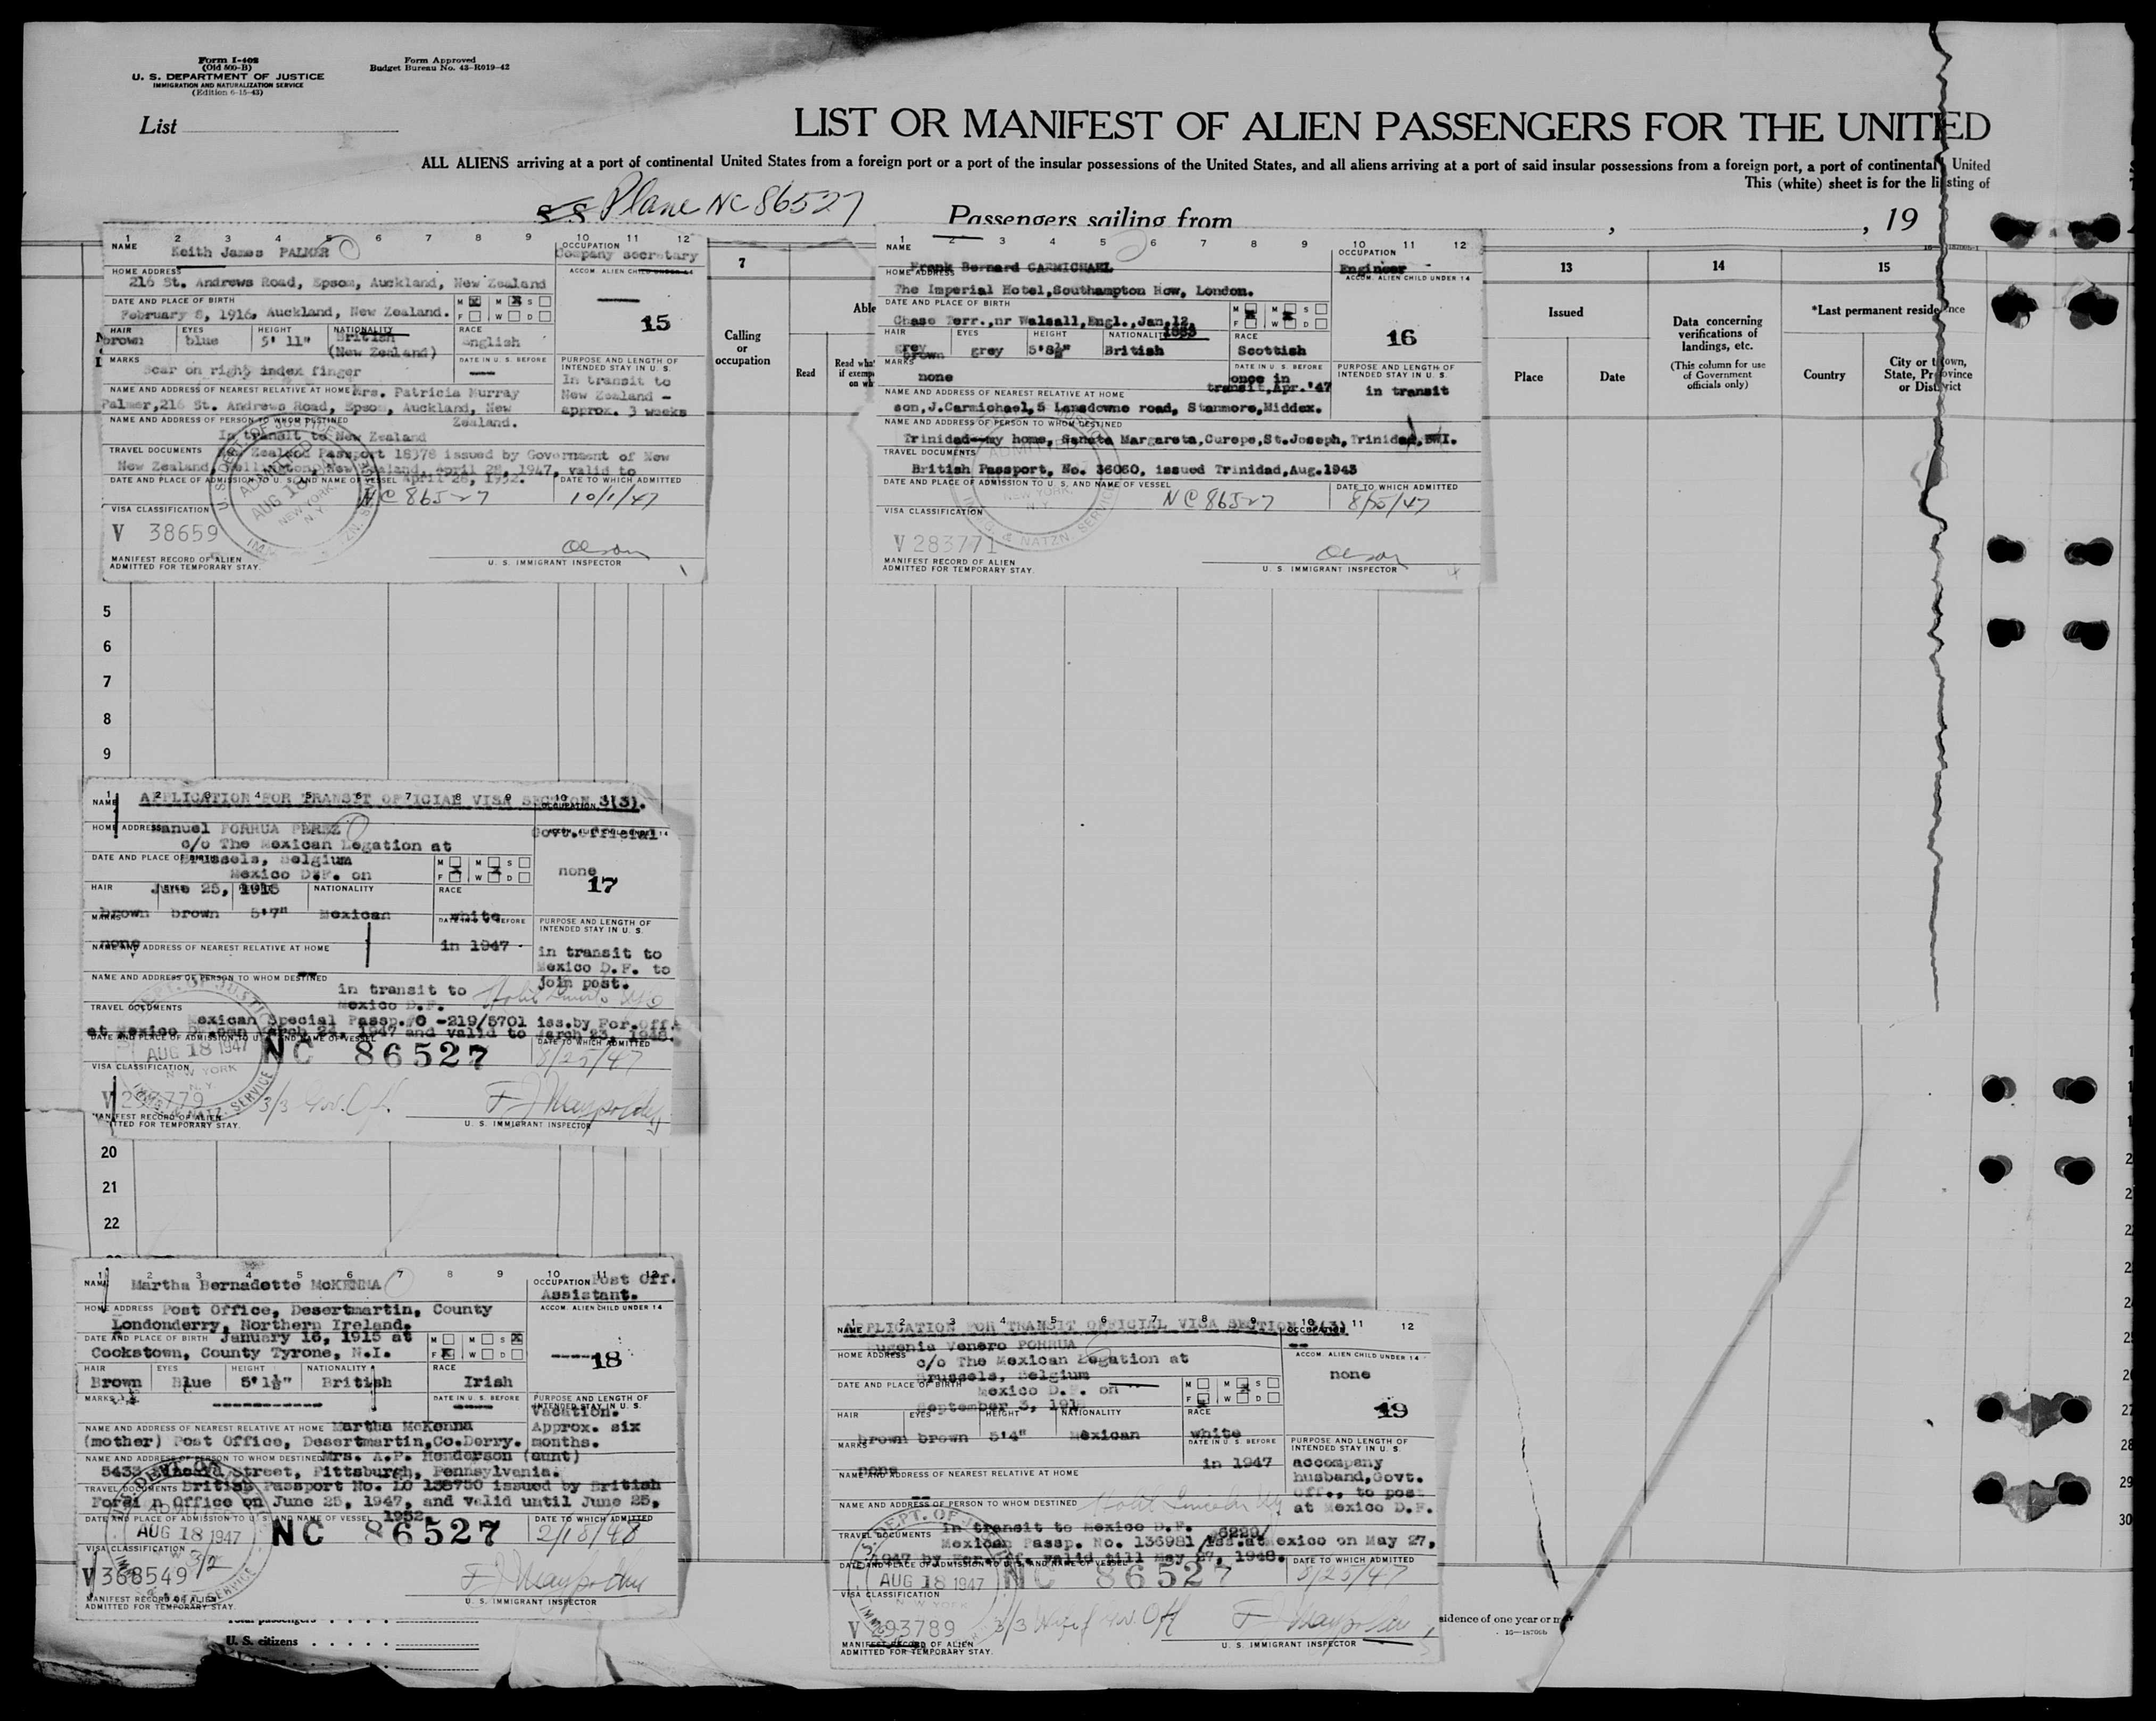 Form I-402
(Old 500-B)
U. S. DEPARTMENT OF JUSTICE
IMMIGRATION AND NATURALIZATION SERVICE
(Edition 6-15-43)
Form Approved
Budget Bureau No. 43-R019-42
List
LIST OR MANIFEST OF ALIEN PASSENGERS FOR THE UNITED
ALL ALIENS arriving at a port of continental United States from a foreign port or a port of the insular possessions of the United States, and all aliens arriving at a port of said insular possessions from a foreign port, a port of continental United
This (white) sheet is for the listing of
SS Plane NC 86527
Passengers sailing from , , 19
1 2 3 4 5 6 7 8 9 10 11 12
NAME Keith James PALMER
OCCUPATION Company secretary
HOME ADDRESS
216 St. Andrews Road, Epsom, Auckland, New Zealand
ACCOM. ALIEN CHILD UNDER 14
DATE AND PLACE OF BIRTH
February 8, 1916, Auckland, New Zealand.
M F M W S D
15
HAIR EYES HEIGHT NATIONALITY RACE
brown blue 5' 11" British (New Zealand) English
MARKS
Scar on right index finger
DATE IN U. S. BEFORE
PURPOSE AND LENGTH OF INTENDED STAY IN U. S.
In transit to
New Zealand -
approx. 3 weeks
NAME AND ADDRESS OF NEAREST RELATIVE AT HOME Mrs. Patricia Murray
Palmer, 216 St. Andrews Road, Epsom, Auckland, New
Zealand.
NAME AND ADDRESS OF PERSON TO WHOM DESTINED
In transit to New Zealand
TRAVEL DOCUMENTS New Zealand Passport 18378 issued by Government of New
New Zealand, Wellington, New Zealand, April 28, 1947, valid to
April 28, 1952.
DATE AND PLACE OF ADMISSION TO U. S. AND NAME OF VESSEL
NC 86527
DATE TO WHICH ADMITTED
10/1/47
VISA CLASSIFICATION
V 38659
ADMITTED
AUG 18
NEW YORK,
N.Y.
Olson
MANIFEST RECORD OF ALIEN
ADMITTED FOR TEMPORARY STAY.
U. S. IMMIGRANT INSPECTOR
1 2 3 4 5 6 7 8 9 10 11 12
NAME
Frank Bernard CARMICHAEL
OCCUPATION
Engineer
HOME ADDRESS
The Imperial Hotel, Southampton Row, London.
ACCOM. ALIEN CHILD UNDER 14
DATE AND PLACE OF BIRTH
Chase Terr., nr Walsall, Engl., Jan, 12,
M F M W S D
16
HAIR EYES HEIGHT NATIONALITY RACE
grey brown grey 5'8½" British Scottish
MARKS
none
DATE IN U. S. BEFORE
once in
transit, Apr. '47
PURPOSE AND LENGTH OF INTENDED STAY IN U. S.
in transit
NAME AND ADDRESS OF NEAREST RELATIVE AT HOME
son, J. Carmichael, 5 Lansdowne road, Stanmore, Middex.
NAME AND ADDRESS OF PERSON TO WHOM DESTINED
Trinidad--my home, Santa Margareta, Curepe, St. Joseph, Trinidad, BWI.
TRAVEL DOCUMENTS
British Passport, No. 36060, issued Trinidad, Aug. 1943
DATE AND PLACE OF ADMISSION TO U. S. AND NAME OF VESSEL
NC 86527
DATE TO WHICH ADMITTED
8/25/47
VISA CLASSIFICATION
V 283771
Olson
MANIFEST RECORD OF ALIEN
ADMITTED FOR TEMPORARY STAY.
U. S. IMMIGRANT INSPECTOR
7
Calling
or
occupation
Able
Read
Read what
if exemp
on wh
13
Issued
Place
Date
14
Data concerning
verifications of
landings, etc.
(This column for use
of Government
officials only)
15
*Last permanent residence
Country
City or town,
State, Province
or District
5
6
7
8
9
1 2 3 4 5 6 7 8 9 10
NAME APPLICATION FOR TRANSIT OFFICIAL VISA SECTION 3(3).
OCCUPATION
HOME ADDRESS Manuel PORRUA PEREZ
Govt. Official
c/o The Mexican Legation at
Brussels, Belgium
DATE AND PLACE OF BIRTH
Mexico D.F. on
June 25, 1916
M F M W S D
none
17
HAIR NATIONALITY RACE
brown brown 5'7" Mexican white
MARKS
none
DATE IN U. S. BEFORE
in 1947
PURPOSE AND LENGTH OF INTENDED STAY IN U. S.
in transit to
Mexico D.F. to
join post.
NAME AND ADDRESS OF NEAREST RELATIVE AT HOME
NAME AND ADDRESS OF PERSON TO WHOM DESTINED
in transit to
Mexico D.F.
TRAVEL DOCUMENTS
Mexican Special Passp. -219/5701 iss. by For. Off.
at Mexico D.F. on March 24, 1947 and valid to March 23, 1948.
DATE AND PLACE OF ADMISSION TO U. S. AND NAME OF VESSEL
AUG 18 1947
NC 86527
DATE TO WHICH ADMITTED
8/25/47
VISA CLASSIFICATION
3/3 Gov. Off.
MANIFEST RECORD OF ALIEN
ADMITTED FOR TEMPORARY STAY.
U. S. IMMIGRANT INSPECTOR
20
21
22
1 2 3 4 5 6 7 8 9 10 11 12
NAME Martha Bernadette McKENNA
OCCUPATION Post Off.
Assistant.
HOME ADDRESS Post Office, Desertmartin, County
Londonderry, Northern Ireland.
ACCOM. ALIEN CHILD UNDER 14
DATE AND PLACE OF BIRTH January 16, 1915 at
Cookstown, County Tyrone, N.I.
M F M W S D
18
HAIR EYES HEIGHT NATIONALITY RACE
Brown Blue 5'1½" British Irish
MARKS
DATE IN U. S. BEFORE
PURPOSE AND LENGTH OF INTENDED STAY IN U. S.
Vacation.
Approx. six
months.
NAME AND ADDRESS OF NEAREST RELATIVE AT HOME Martha McKenna
(mother) Post Office, Desertmartin, Co. Derry.
NAME AND ADDRESS OF PERSON TO WHOM DESTINED Mrs. A.P. Henderson (aunt)
5433 Street, Pittsburgh, Pennsylvania.
TRAVEL DOCUMENTS British Passport No. LO 138750 issued by British
Foreign Office on June 25, 1947, and valid until June 25,
1952.
DATE AND PLACE OF ADMISSION TO U. S. AND NAME OF VESSEL
AUG 18 1947
NC 86527
DATE TO WHICH ADMITTED
2/18/48
VISA CLASSIFICATION
V 368549
3/2
MANIFEST RECORD OF ALIEN
ADMITTED FOR TEMPORARY STAY.
U. S. IMMIGRANT INSPECTOR
1 2 3 4 5 6 7 8 9 10 11 12
NAME APPLICATION FOR TRANSIT OFFICIAL VISA SECTION 3(3)
OCCUPATION
Eugenia Venero PORRUA
HOME ADDRESS c/o The Mexican Legation at
Brussels, Belgium
ACCOM. ALIEN CHILD UNDER 14
none
DATE AND PLACE OF BIRTH Mexico D.F. on
September 3,
M F M W S D
19
HAIR EYES HEIGHT NATIONALITY RACE
brown brown 5'4" Mexican white
MARKS
none
DATE IN U. S. BEFORE
in 1947
PURPOSE AND LENGTH OF INTENDED STAY IN U. S.
accompany
husband, Govt.
Off., to post
at Mexico D.F.
NAME AND ADDRESS OF NEAREST RELATIVE AT HOME
NAME AND ADDRESS OF PERSON TO WHOM DESTINED Hotel Lincoln NY
in transit to Mexico D.F.
TRAVEL DOCUMENTS Mexican Passp. No. 136981/6229/iss. at Mexico on May 27,
1947 by For. Off. valid till May 27, 1948.
DATE AND PLACE OF ADMISSION TO U. S. AND NAME OF VESSEL
AUG 18 1947
NEW YORK
NC 86527
DATE TO WHICH ADMITTED
8/25/47
VISA CLASSIFICATION
V 293789
3/3 Wife of Gov. Off
MANIFEST RECORD OF ALIEN
ADMITTED FOR TEMPORARY STAY.
U. S. IMMIGRANT INSPECTOR
28
29
30
Total passengers
U. S. citizens
sidence of one year or m